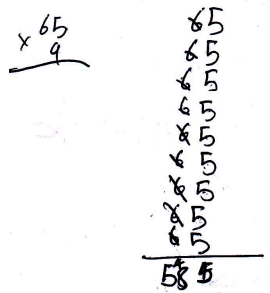 65
× 9
65
65
65
65
65
65
65
65
65
585